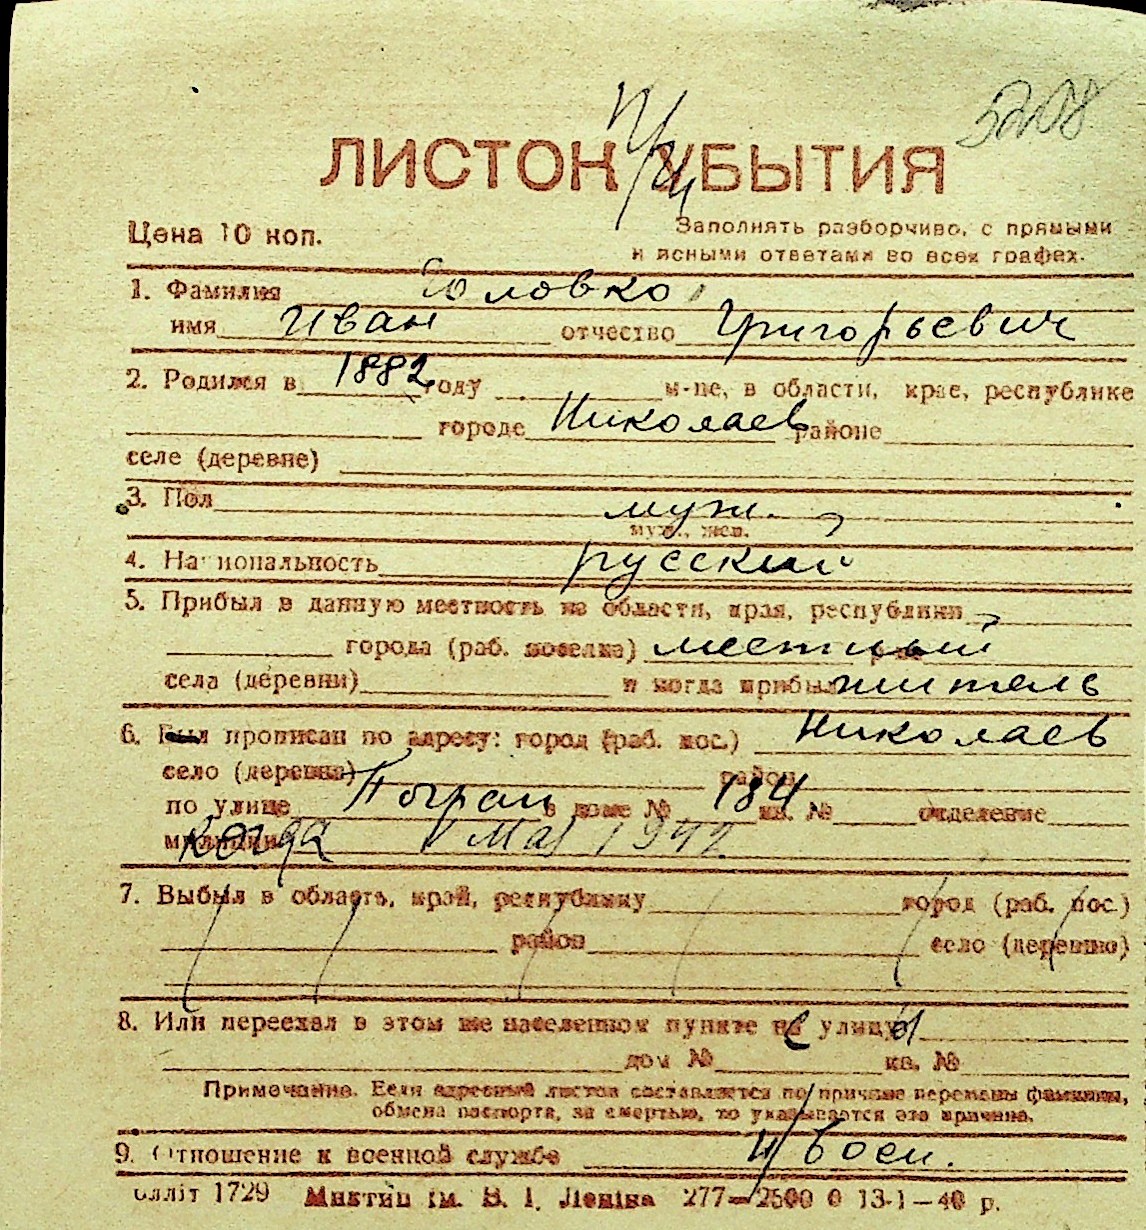 5208
п/ц
ЛИСТОК УБЫТИЯ
Цена 10 коп.
Заполнять разборчиво, с прямыми
и ясными ответами во всех графах.
1. Фамилия Головко
имя Иван отчество Григорьевич
2. Родился в 1882 году м-це, в области, крае, республике
городе Николаев районе
селе (деревне)
3. Пол муж.
муж., жен.
4. Национальность русский
5. Прибыл в данную местность из области, края, республики
города (раб. поселка) местный
села (деревни) и когда прибыл житель
6. Был прописан по адресу: город (раб. пос.) Николаев
село (деревня) район
по улице Погран в доме № 184 кв. № отделение
милиции когда Май 1942
7. Выбыл в область, край, республику город (раб. пос.)
район село (деревню)
8. Или переехал в этом же населенном пункте на улицу
дом № кв. №
Примечание. Если адресный листок составляется по причине перемены фамилии,
обмена паспорта, за смертью, то указывается эта причина.
9. Отношение к военной службе н/воен.
облліт 1729 Миктип ім. В. І. Леніна 277—2500 0 13-1—40 р.